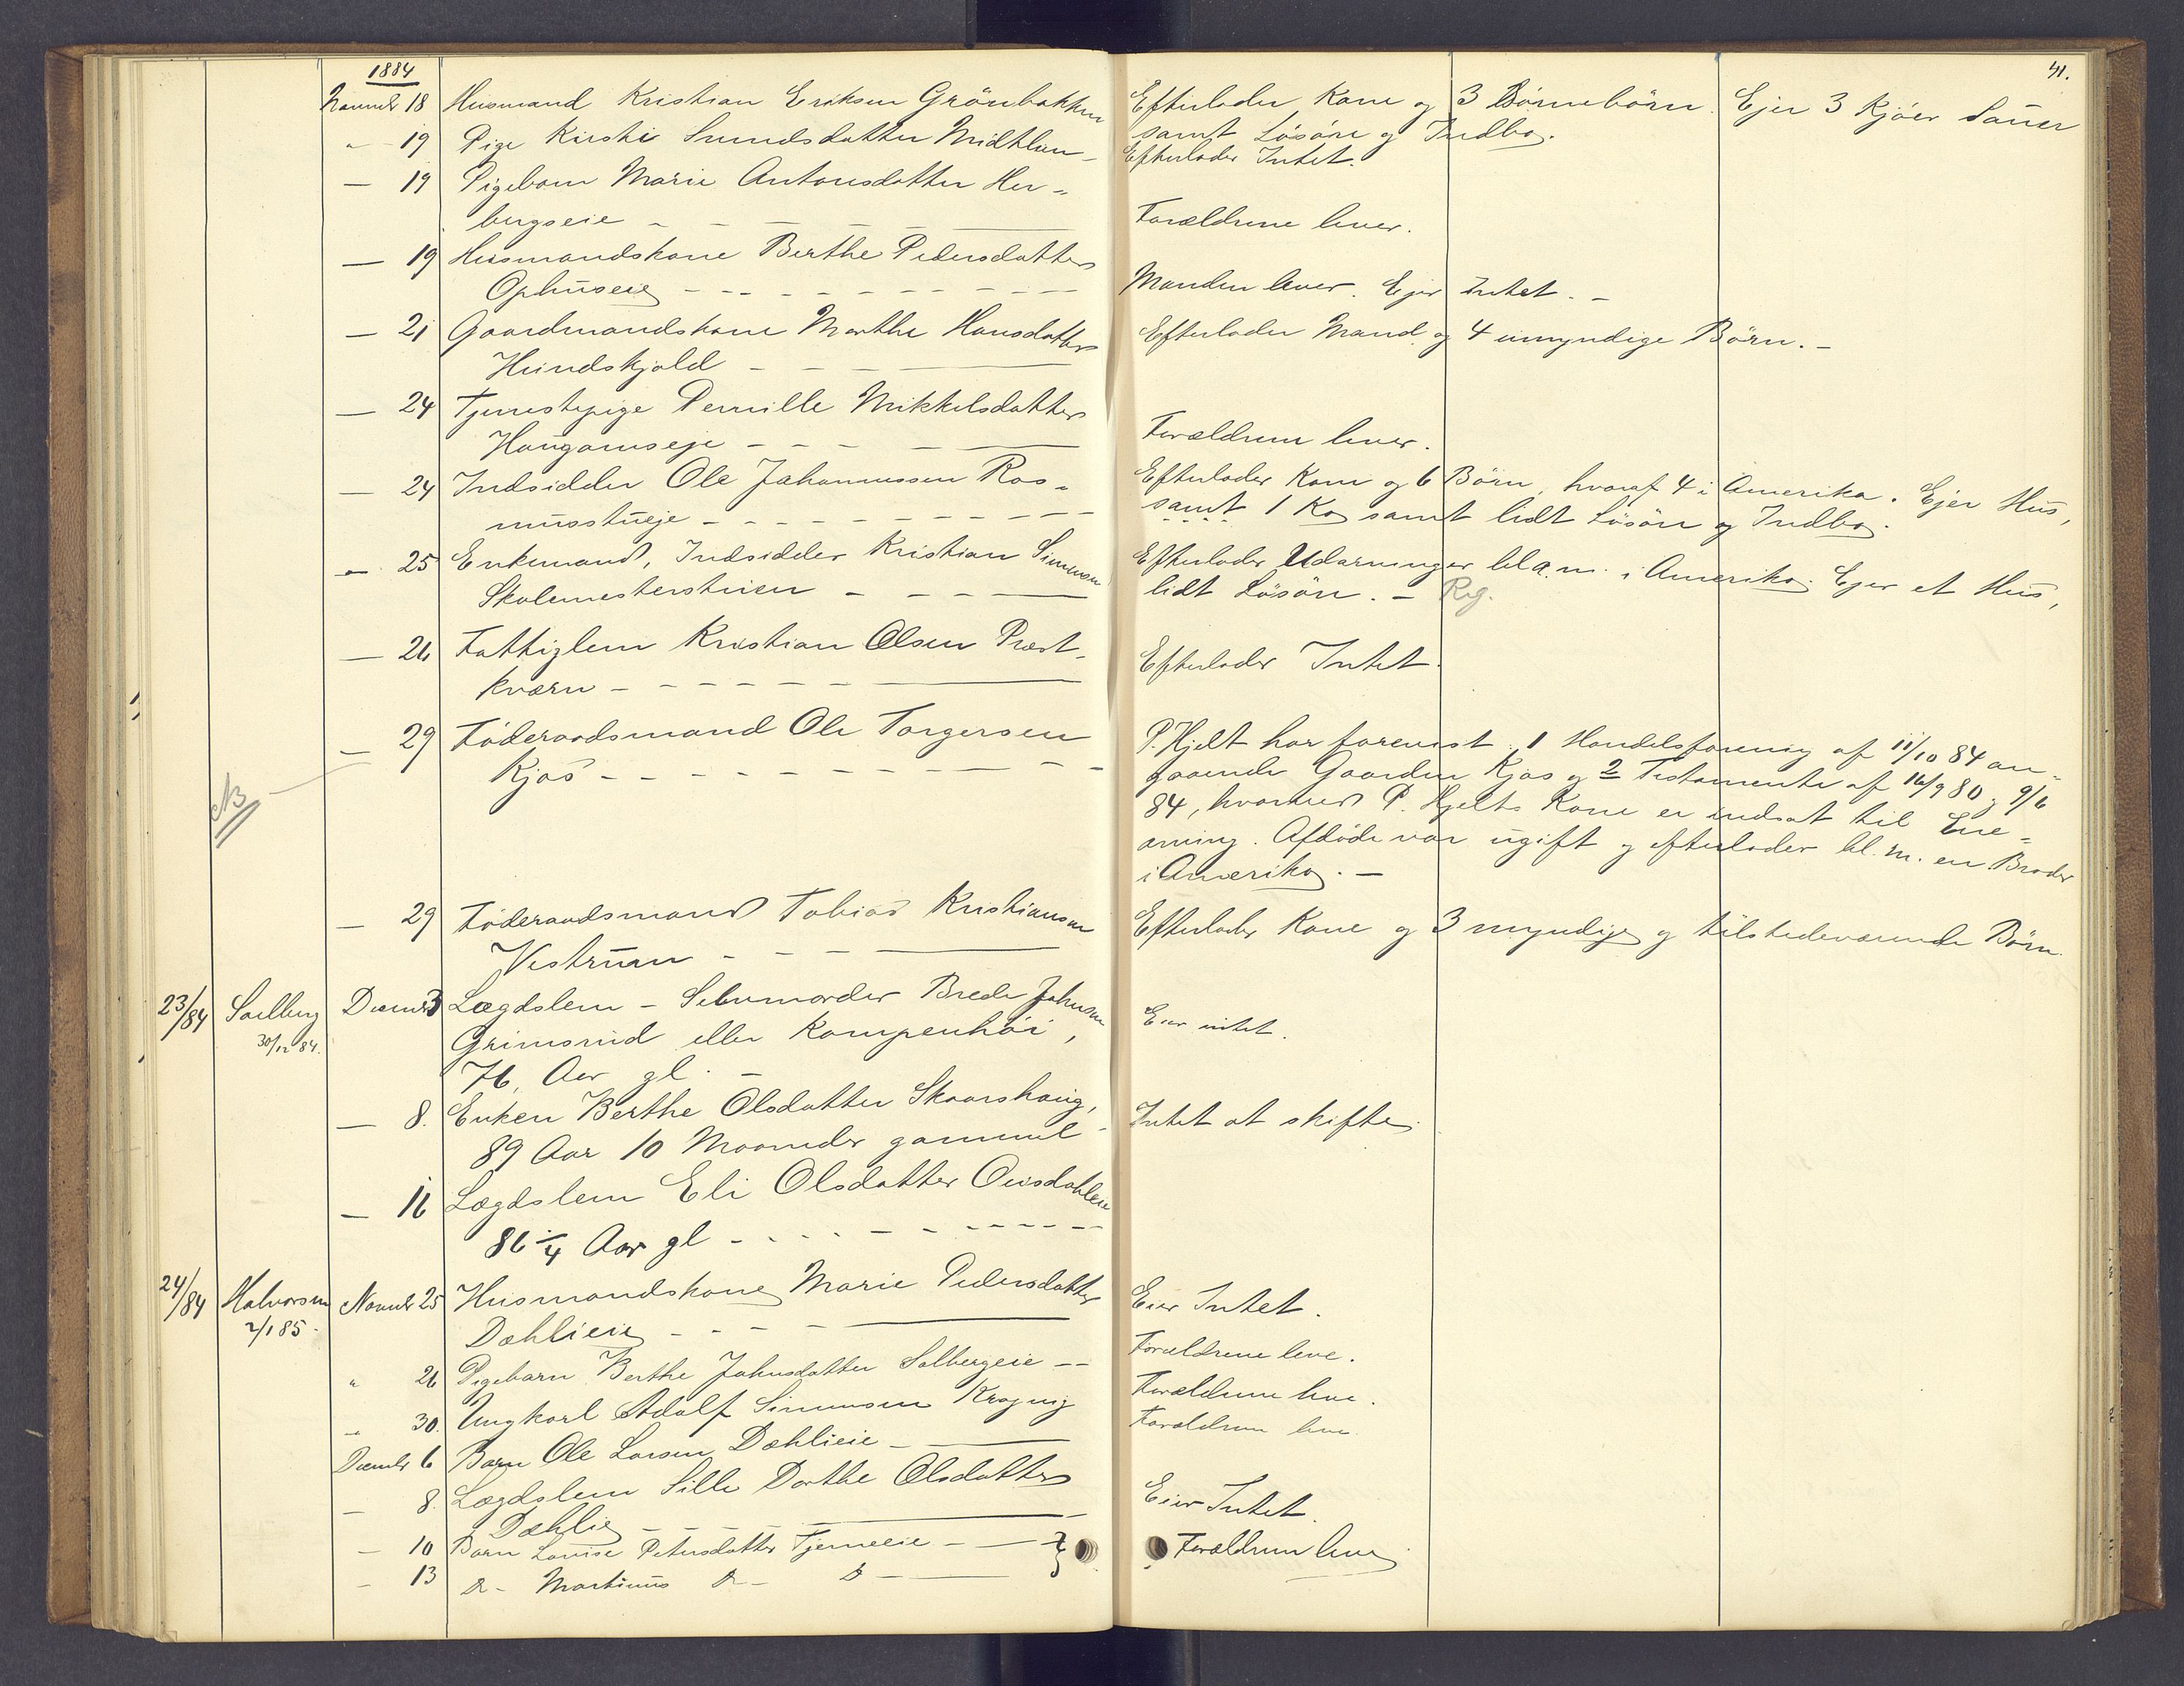 1884
41.
Novembr 18 Husmand Kristian Eriksen Grönbakken
Efterlader Kone og 3 Börnebörn. Ejer 3 Kjöer Sauer
samt Lösöre og Indbo.
" 19 Pige Kirsti Smundsdatter Midtlien
Efterlader Intet.
— 19 Pigebarn Marie Antonsdatter Her-
bergseie
Forældrene lever.
— 19 Husmandskone Berthe Pedersdatter
Ophuseie
Manden lever. Ejer Intet. —
— 21 Gaardmandskone Marthe Hansdatter
Hundskjold
Efterlader Mand og 4 umyndige Börn. —
— 24 Tjenestepige Pernille Mikkelsdatter
Haugarnseje
Forældrene lever.
— 24 Indsidder Ole Johannessen Ras-
musstueje
Efterlader Kone og 6 Börn, hvoraf 4 i Amerika. Ejer Hus,
samt 1 Ko samt lidt Lösöre og Indbo.
— 25 Enkemand, Indsidder Kristian Simensen
Skolemesterstuen
Efterlader Udarvinger bl.a.m. i Amerika. Ejer et Hus,
lidt Lösöre. — Reg.
— 26 Fattiglem Kristian Olsen Præst-
kværn
Efterlader Intet.
— 29 Föderaadsmand Ole Torgersen
Kjos
NB
P. Hjelt har forevist: 1 Handelsforening af 11/10 84 an-
gaaende Gaarden Kjos og 2 Testamente af 16/9 80 og 9/6
84, hvorved P. Hjelts Kone er indsat til Ene-
arving. Afdöde var ugift og efterlader bl. m. en Broder
i Amerika. —
— 29 Föderaadsmand Tobias Kristiansen
Vestrum
Efterlader Kone og 3 myndige og tilstedeværende Börn.
23/84 Soelberg Decembr 3 Lægdslem - Selvmorder Brede Johnsen
30/12 84.
Grimsrud eller Kampenhöi,
76, Aar gl. —
Eier intet.
— 8. Enken Berthe Olsdatter Skaarshaug,
89 Aar 10 Maaneder gammel
Intet at skifte.
— 16 Lægdslem Eli Olsdatter
86 1/4 Aar gl
24/84 Halvorsen Novembr 25 Husmandskone Marie Pedersdatter
2/1 85.
Dæhlieie
Eier Intet.
" 26 Pigebarn Berthe Johnsdatter Solbergeie
Forældrene leve.
" 30. Ungkarl Adolf Simensen
Forældrene leve.
Decembr 6 Barn Ole Larsen Dæhlieie
Forældrene leve
— 8. Lægdslem Sille Dorthe Olsdatter
Dæhlie
Eier Intet.
— 10 Barn Lovise Petersdatter Tjerneeie
Forældrene leve
— 13 Do — Martinus Do — Do